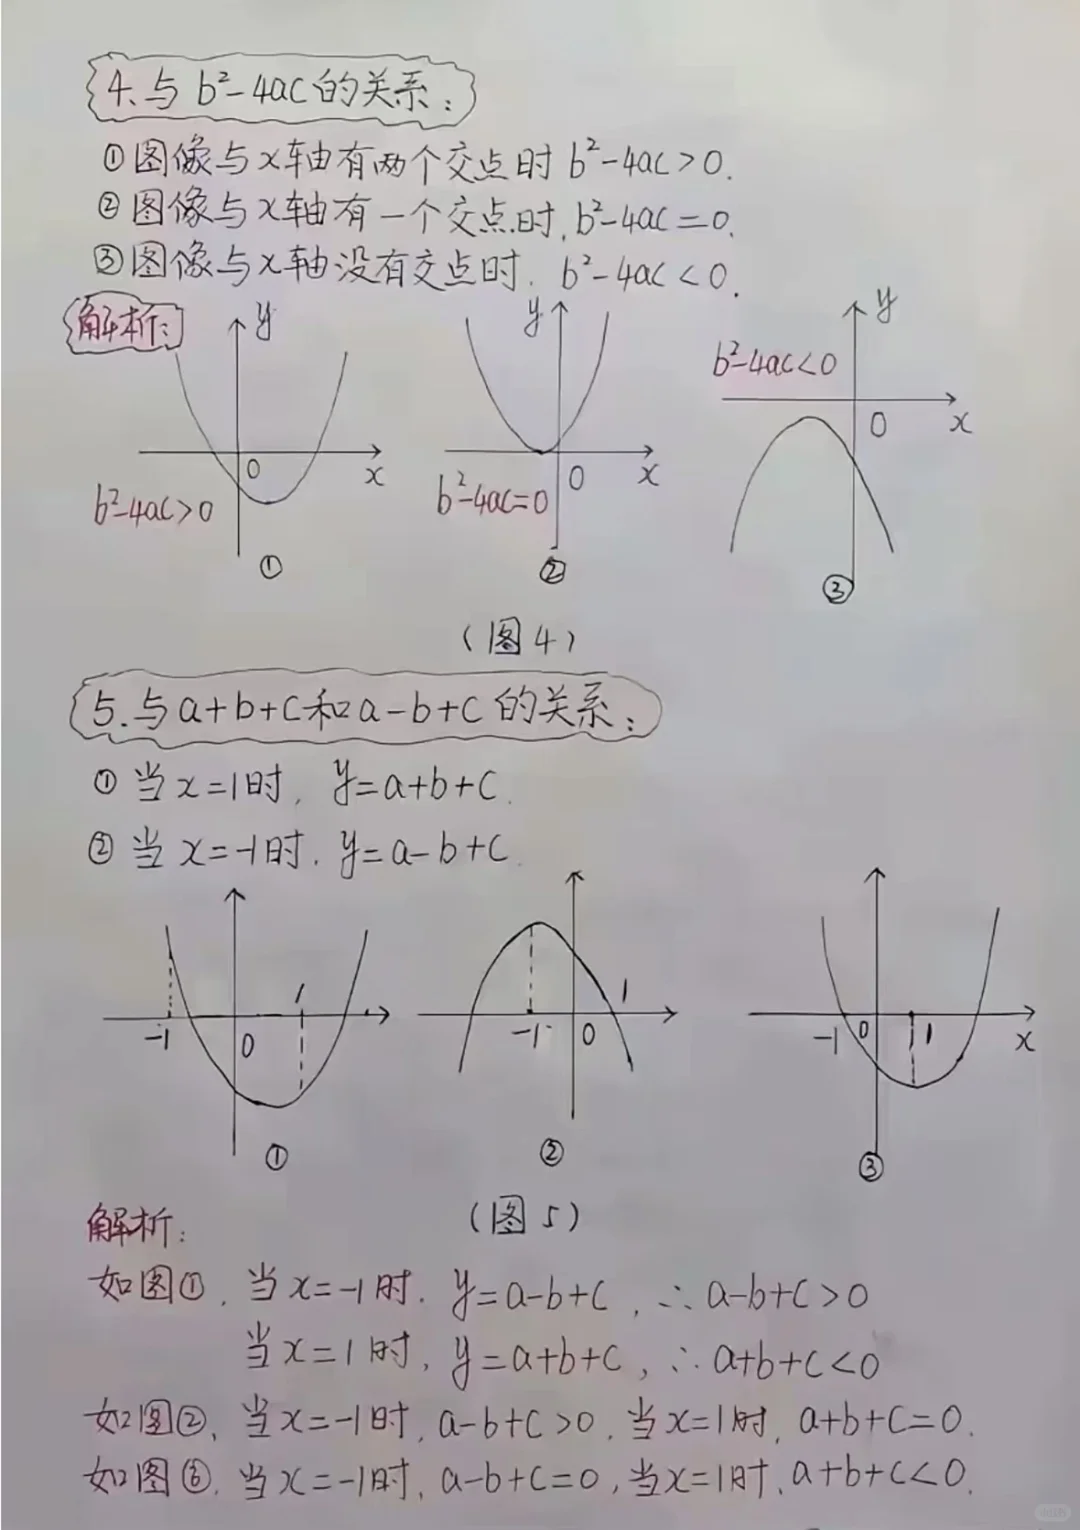 4.与b²-4ac的关系:
①图像与x轴有两个交点时b²-4ac>0.
②图像与x轴有一个交点时,b²-4ac=0.
③图像与x轴没有交点时,b²-4ac<0.
解析:
y
y
y
b²-4ac<0
0
x
0
x
0
x
b²-4ac>0
b²-4ac=0
①
②
③
(图4)
5.与a+b+c和a-b+c的关系:
①当x=1时,y=a+b+c.
②当x=-1时,y=a-b+c.
-1 0 1
-1 0 1
-1 0 1 x
①
②
③
(图5)
解析:
如图①,当x=-1时,y=a-b+c,∴a-b+c>0
当x=1时,y=a+b+c,∴a+b+c<0
如图②,当x=-1时,a-b+c>0,当x=1时,a+b+c=0.
如图③,当x=-1时,a-b+c=0,当x=1时,a+b+c<0.